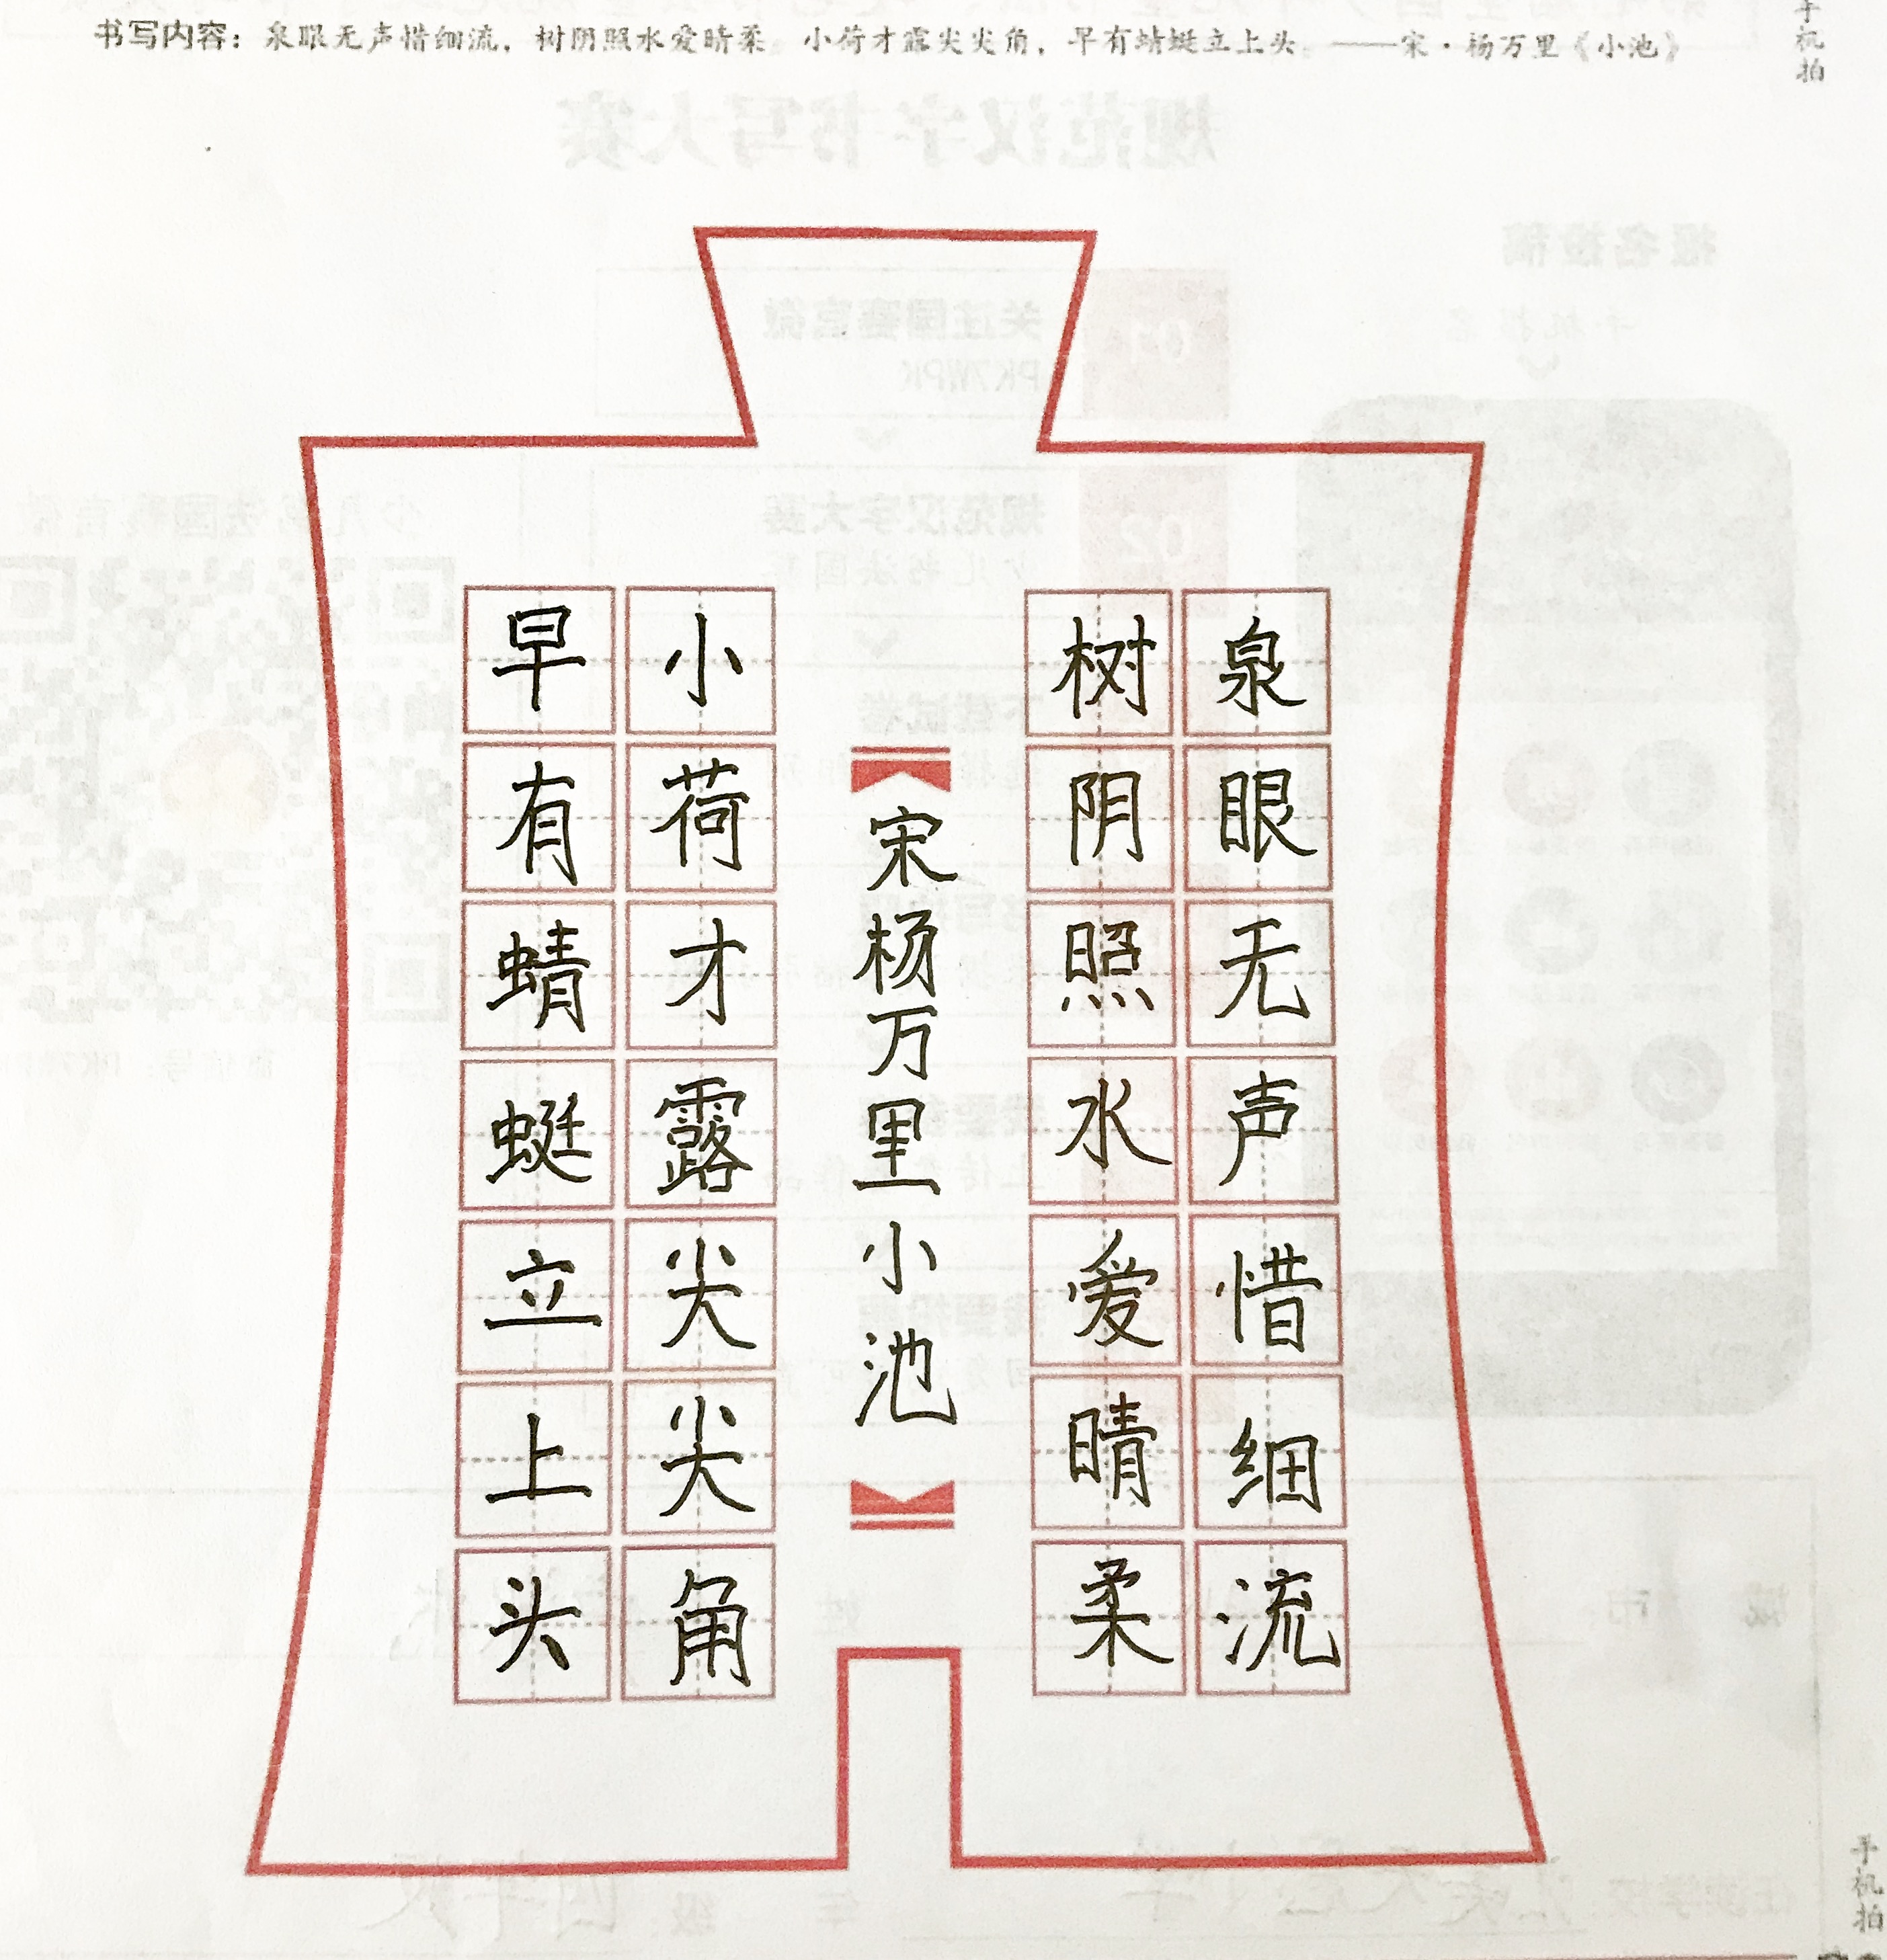 书写内容：泉眼无声惜细流，树阴照水爱晴柔。小荷才露尖尖角，早有蜻蜓立上头。——宋·杨万里《小池》
手机拍
泉眼无声惜细流
树阴照水爱晴柔
宋杨万里小池
小荷才露尖尖角
早有蜻蜓立上头
手机拍